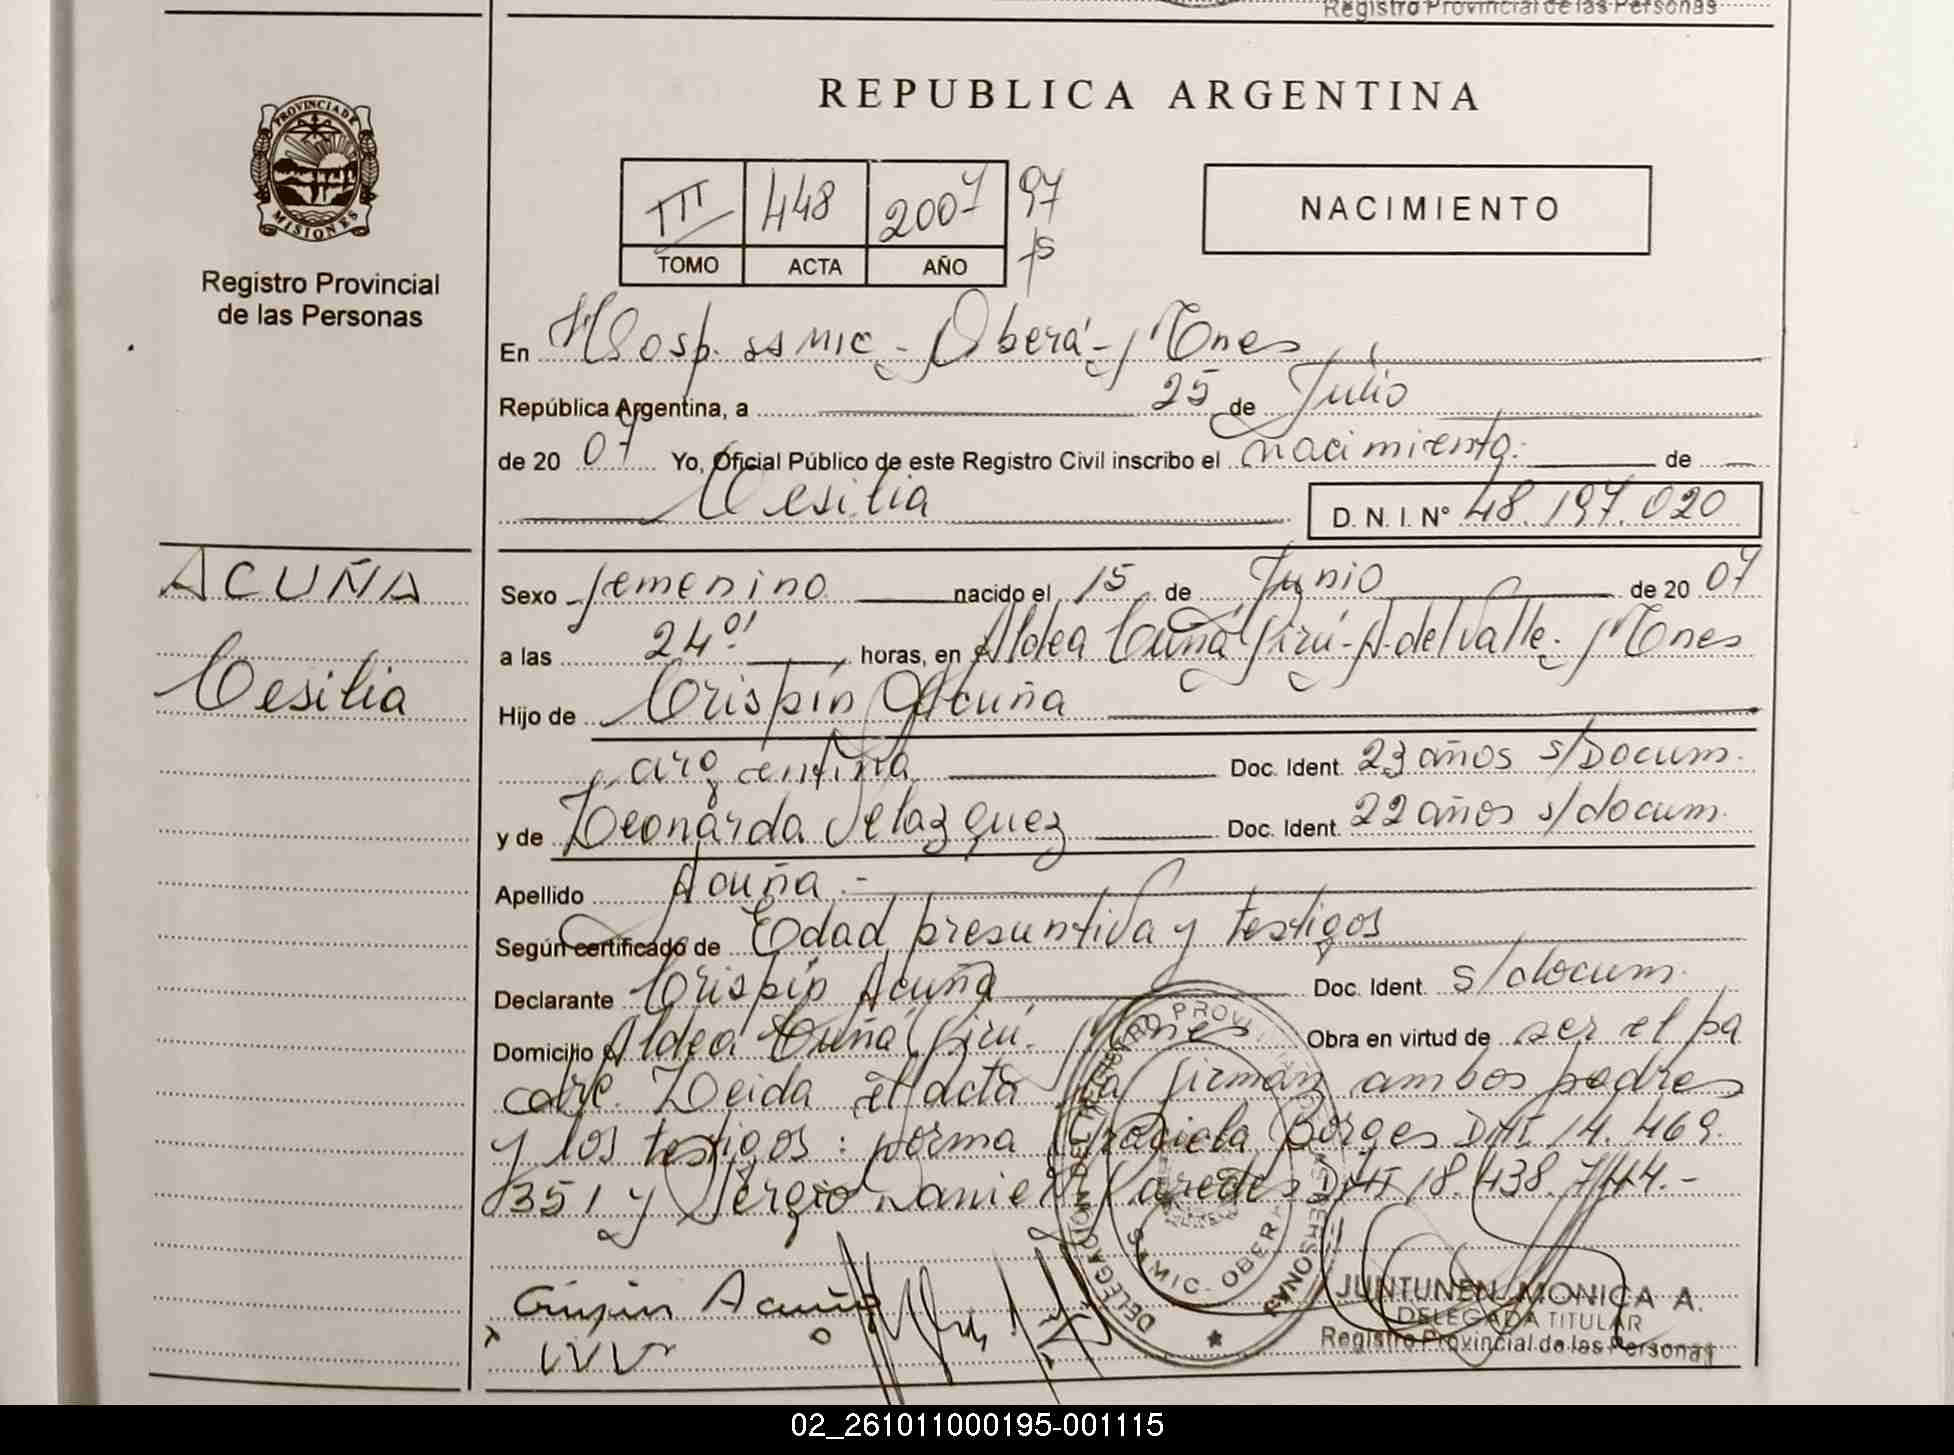 Registro Provincial de las Personas
PROVINCIA DE
MISIONES
Registro Provincial
de las Personas
REPUBLICA ARGENTINA
III 448 2007 97
TOMO ACTA AÑO
NACIMIENTO
En Hosp. SAMIC - Oberá - Mnes
República Argentina, a 25 de Julio
de 20 07 Yo, Oficial Público de este Registro Civil inscribo el nacimiento. de
Cesilia D. N. I. Nº 48.197.020
ACUÑA
Cesilia
Sexo femenino nacido el 15 de Junio de 20 07
a las 24⁰¹ horas, en Aldea Cuña Pirú - A. del Valle - Mnes
Hijo de Crispín Acuña
argentina Doc. Ident. 23 años s/Docum.
y de Leonarda Velazquez Doc. Ident. 22 años s/docum.
Apellido Acuña.-
Según certificado de Edad presuntiva y testigos
Declarante Crispín Acuña Doc. Ident. s/docum.
Domicilio Aldea Cuña Pirú. Mnes Obra en virtud de ser el pa
dre. Leida el acta la firman ambos padres
y los testigos: Norma Graciela Borges DNI 14.469.
351 y Sergio Daniel Paredes DNI 18.438.744.-
DELEGACION DEL REGISTRO PROVINCIAL DE LAS PERSONAS
SAMIC - OBERA
Crispin Acuña
JUNTUNEN MONICA A.
DELEGADA TITULAR
Registro Provincial de las Personas
02_261011000195-001115